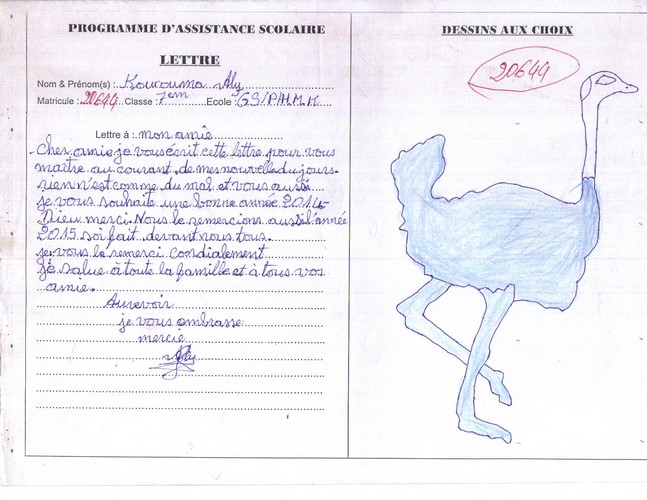 PROGRAMME D'ASSISTANCE SCOLAIRE
LETTRE
Nom & Prénom(s) : Kourouma Aly
Matricule : 20644 Classe : 7em Ecole : GS/P/H.M.K
Lettre à : mon amie
cher amie je vous écrit cette lettre pour vous
maître au courant de mes nouvelle du jours
rien n'est comme du mal et vous aussi
je vous souhaite une bonne année 2014
Dieu merci. Nous le remercions aussi l'année
2015 soi fait devant nous tous.
je vous le remerci cordialement
je salue à toute la famille et à tous vos
amie.
Aurevoir
je vous embrasse
mercie
Aly
DESSINS AUX CHOIX
20644